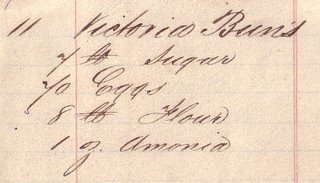 11 Victoria Buns
7 lb Sugar
70 Eggs
8 lb Flour
1 oz. Amonia